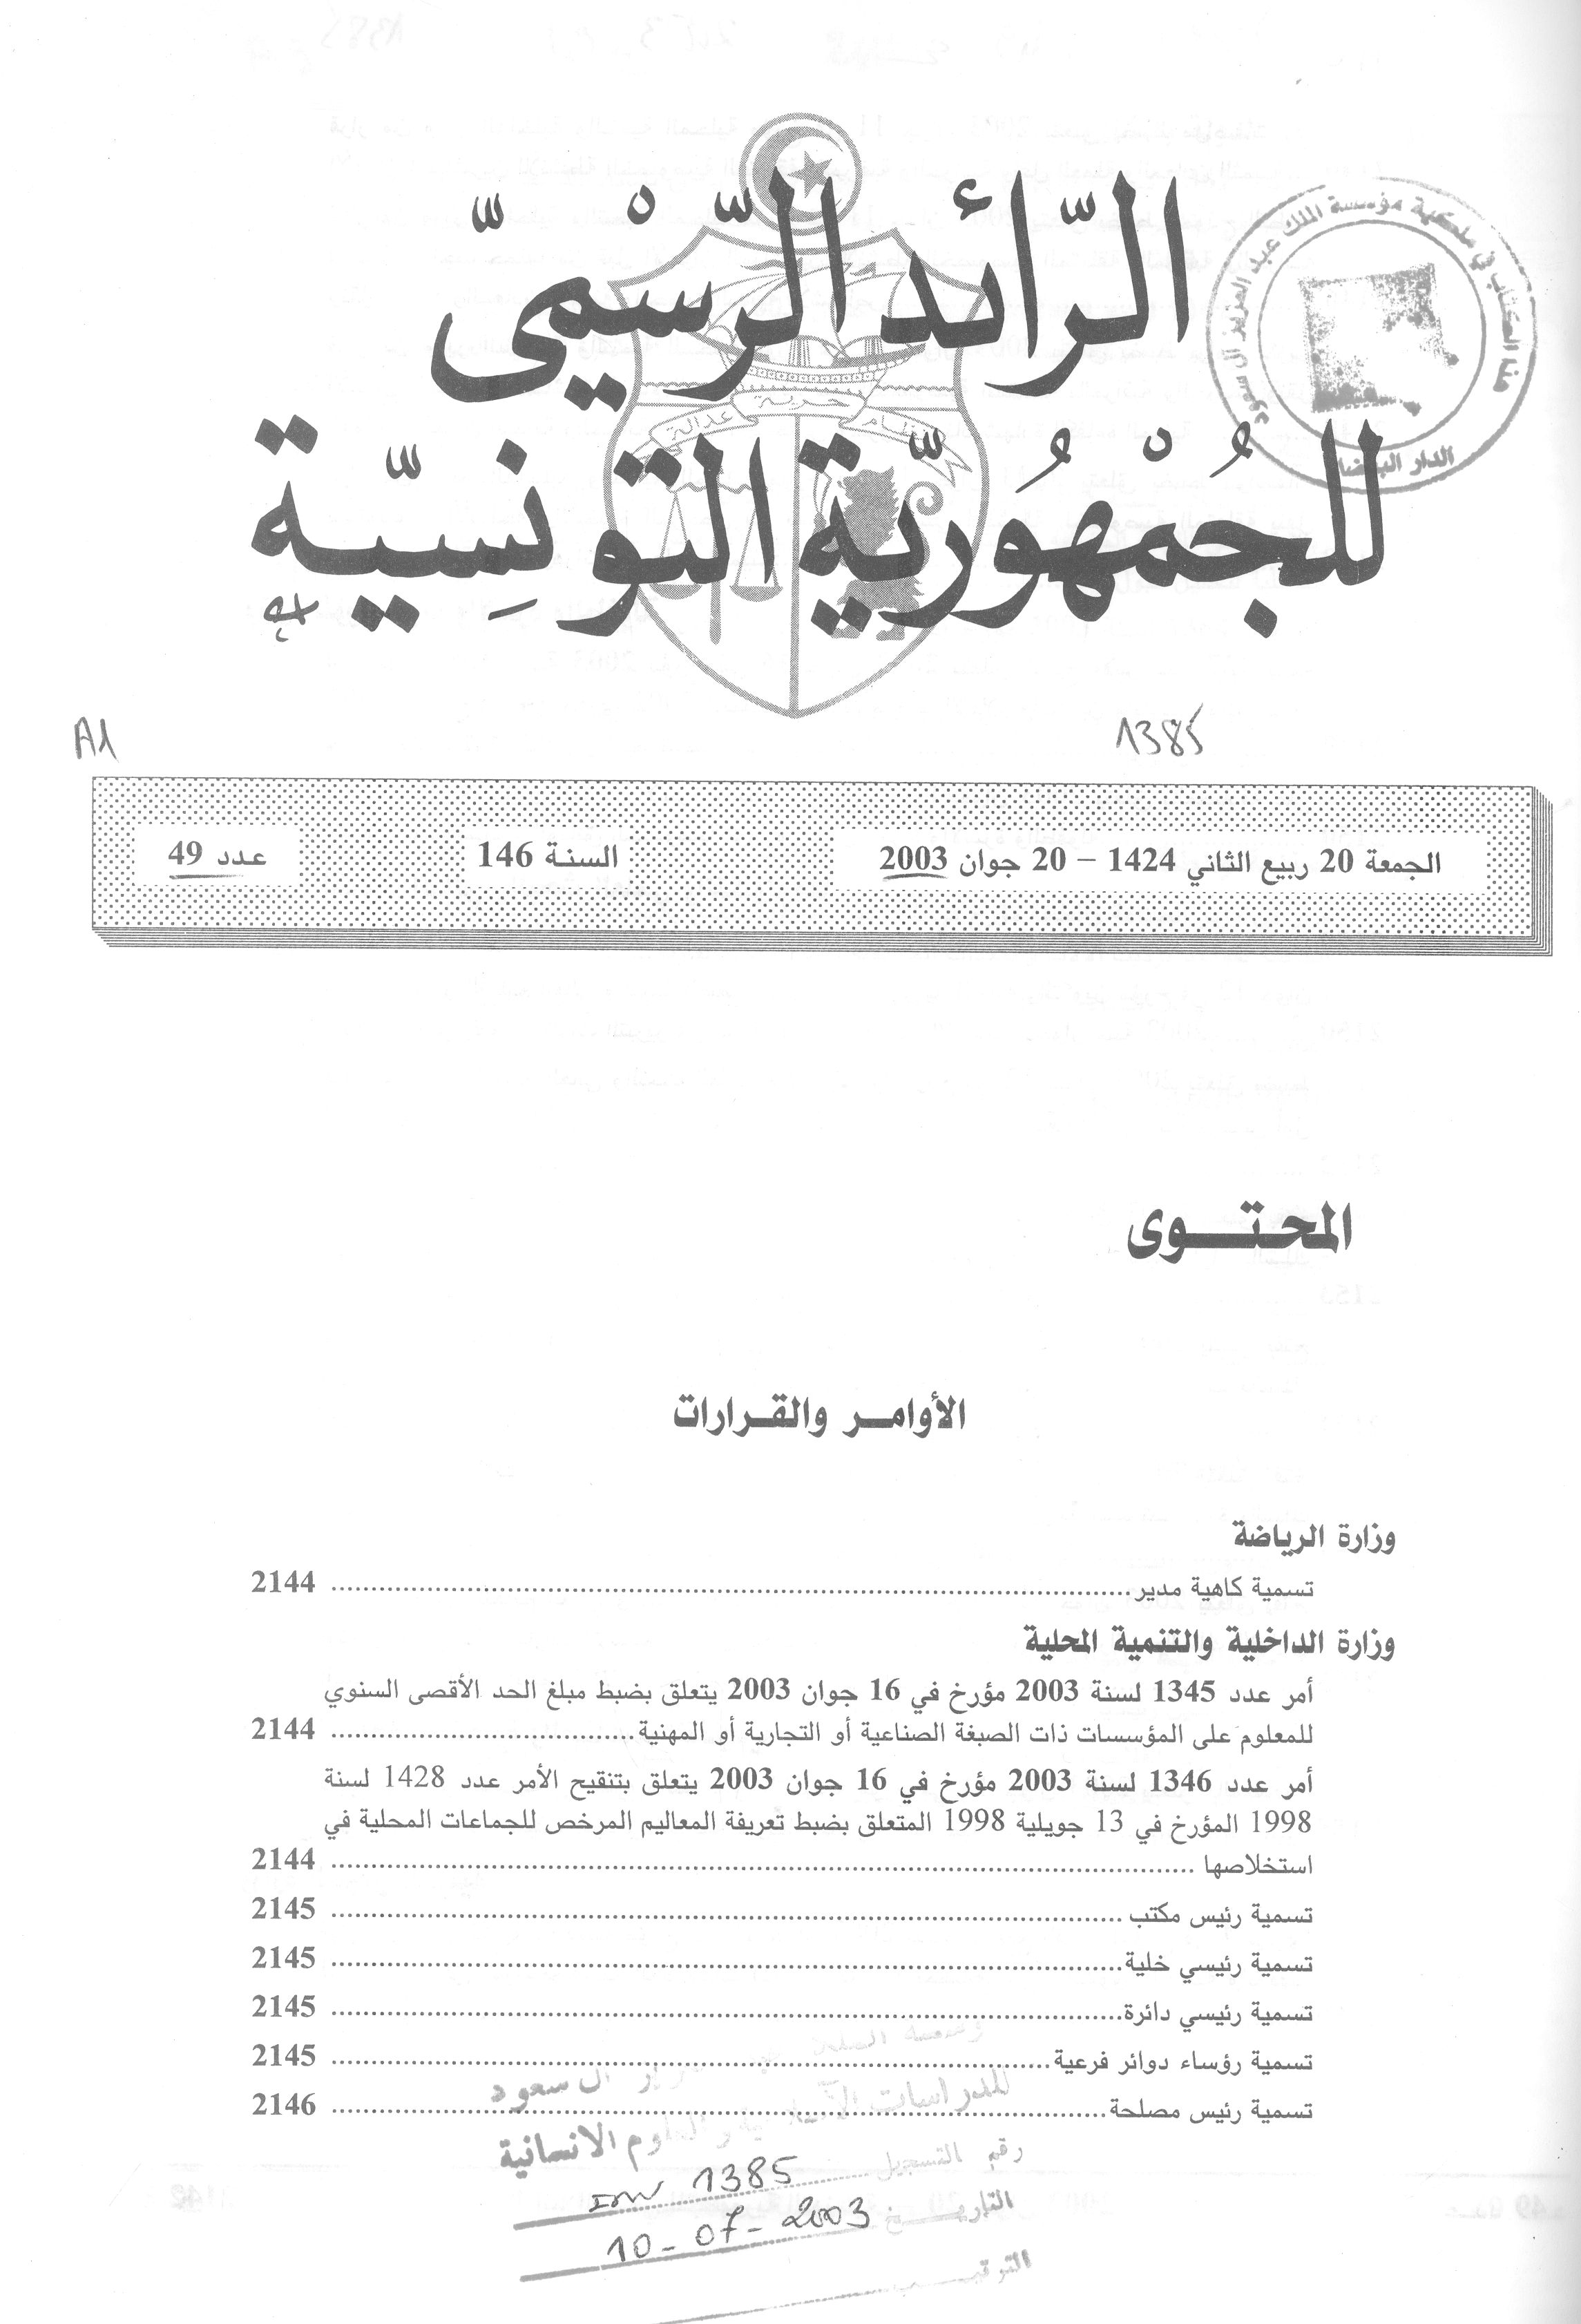 الرّائد الرّسْميّ
للجُمْهُوريّة التونِسيّة
نظام حرية عدالة
هذا الكتاب في ملكية مؤسسة الملك عبد العزيز آل سعود
الدار البيضاء
A1
1385
الجمعة 20 ربيع الثاني 1424 – 20 جوان 2003
السنة 146
عدد 49
المحتوى
الأوامر والقرارات
وزارة الرياضة
تسمية كاهية مدير 2144
وزارة الداخلية والتنمية المحلية
أمر عدد 1345 لسنة 2003 مؤرخ في 16 جوان 2003 يتعلق بضبط مبلغ الحد الأقصى السنوي
للمعلوم على المؤسسات ذات الصبغة الصناعية أو التجارية أو المهنية 2144
أمر عدد 1346 لسنة 2003 مؤرخ في 16 جوان 2003 يتعلق بتنقيح الأمر عدد 1428 لسنة
1998 المؤرخ في 13 جويلية 1998 المتعلق بضبط تعريفة المعاليم المرخص للجماعات المحلية في
استخلاصها 2144
تسمية رئيس مكتب 2145
تسمية رئيسي خلية 2145
تسمية رئيسي دائرة 2145
تسمية رؤساء دوائر فرعية 2145
تسمية رئيس مصلحة 2146
آل سعود
للدراسات العلوم الانسانية
رقم التسجيل 1385
التاريخ 10-07-2003